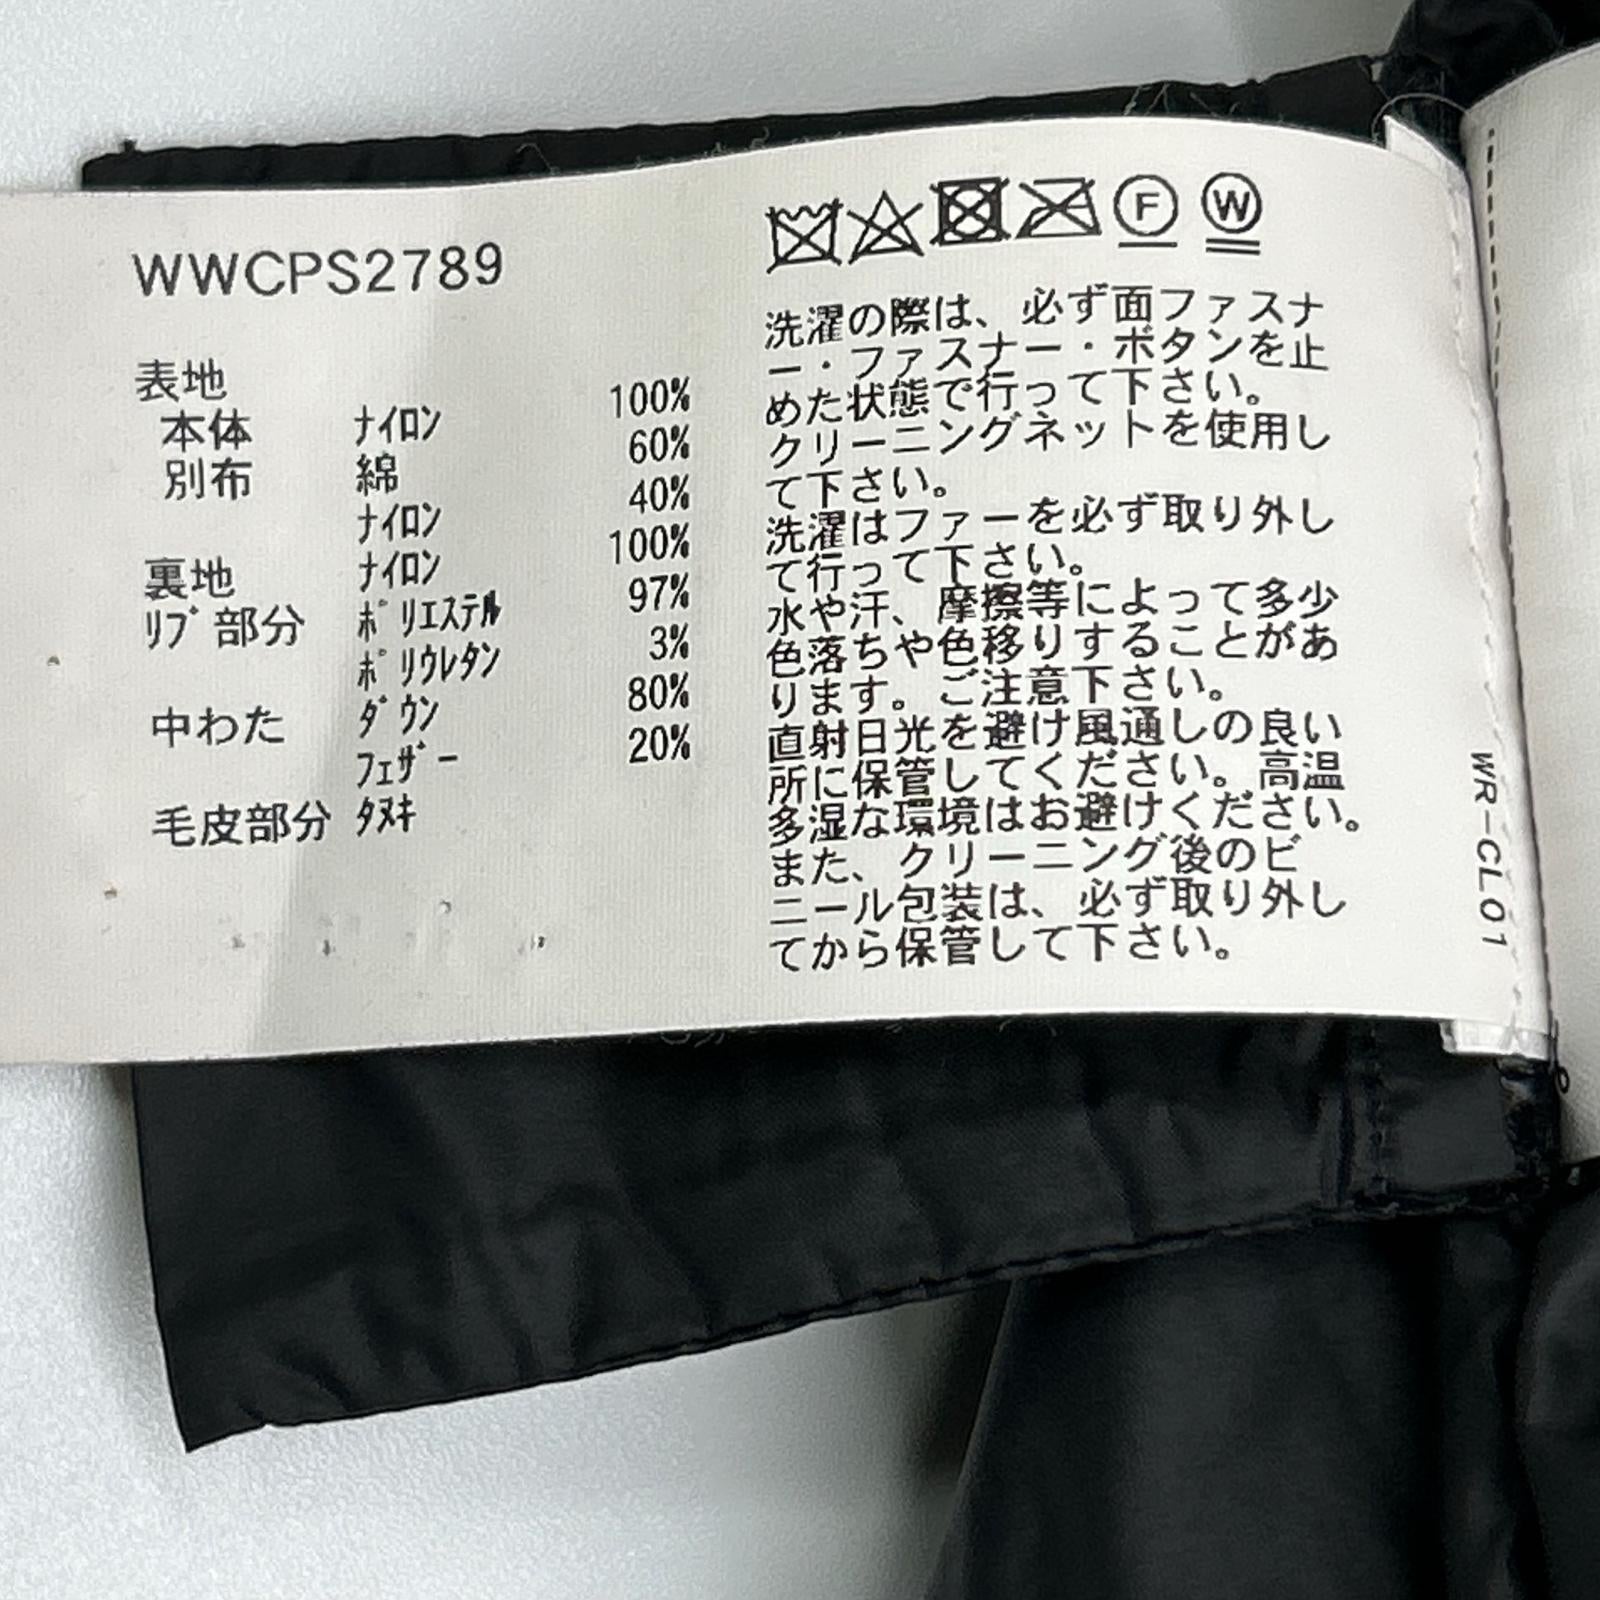 WWCPS2789
表地
本体 ナイロン 100%
別布 綿 60%
ナイロン 40%
裏地 ナイロン 100%
リブ部分 ポリエステル 97%
ポリウレタン 3%
中わた ダウン 80%
フェザー 20%
毛皮部分 タヌキ
F W
洗濯の際は、必ず面ファスナ
ー・ファスナー・ボタンを止
めた状態で行って下さい。
クリーニングネットを使用し
て下さい。
洗濯はファーを必ず取り外し
て行って下さい。
水や汗、摩擦等によって多少
色落ちや色移りすることがあ
ります。ご注意下さい。
直射日光を避け風通しの良い
所に保管してください。高温
多湿な環境はお避けください。
また、クリーニング後のビ
ニール包装は、必ず取り外し
てから保管して下さい。
WR-CL01